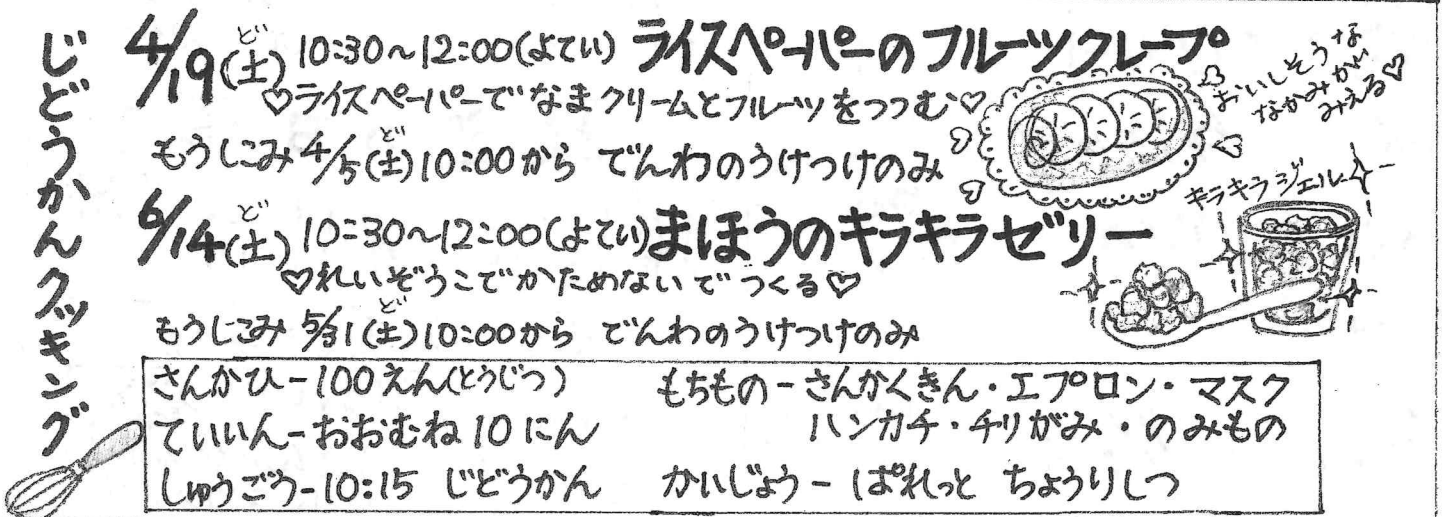 じどうかんクッキング
4/19(土)ど 10:30~12:00(よてい) ライスペーパーのフルーツクレープ
♡ライスペーパーでなまクリームとフルーツをつつむ♡
おいしそうな
なかみが
みえる♡
もうしこみ 4/5(土)ど 10:00から でんわのうけつけのみ
キラキラジェル
6/14(土)ど 10:30~12:00(よてい) まほうのキラキラゼリー
♡れいぞうこでかためないでつくる♡
もうしこみ 5/31(土)ど 10:00から でんわのうけつけのみ
さんかひ-100えん(とうじつ)
ていいん-おおむね10にん
しゅうごう-10:15 じどうかん
もちもの-さんかくきん・エプロン・マスク
ハンカチ・チリがみ・のみもの
かいじょう-ぱれっと ちょうりしつ